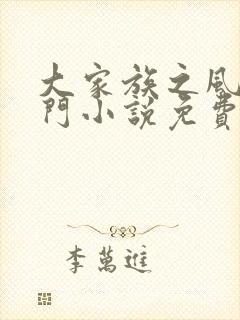 大家族之風
門小說免費
李萬進